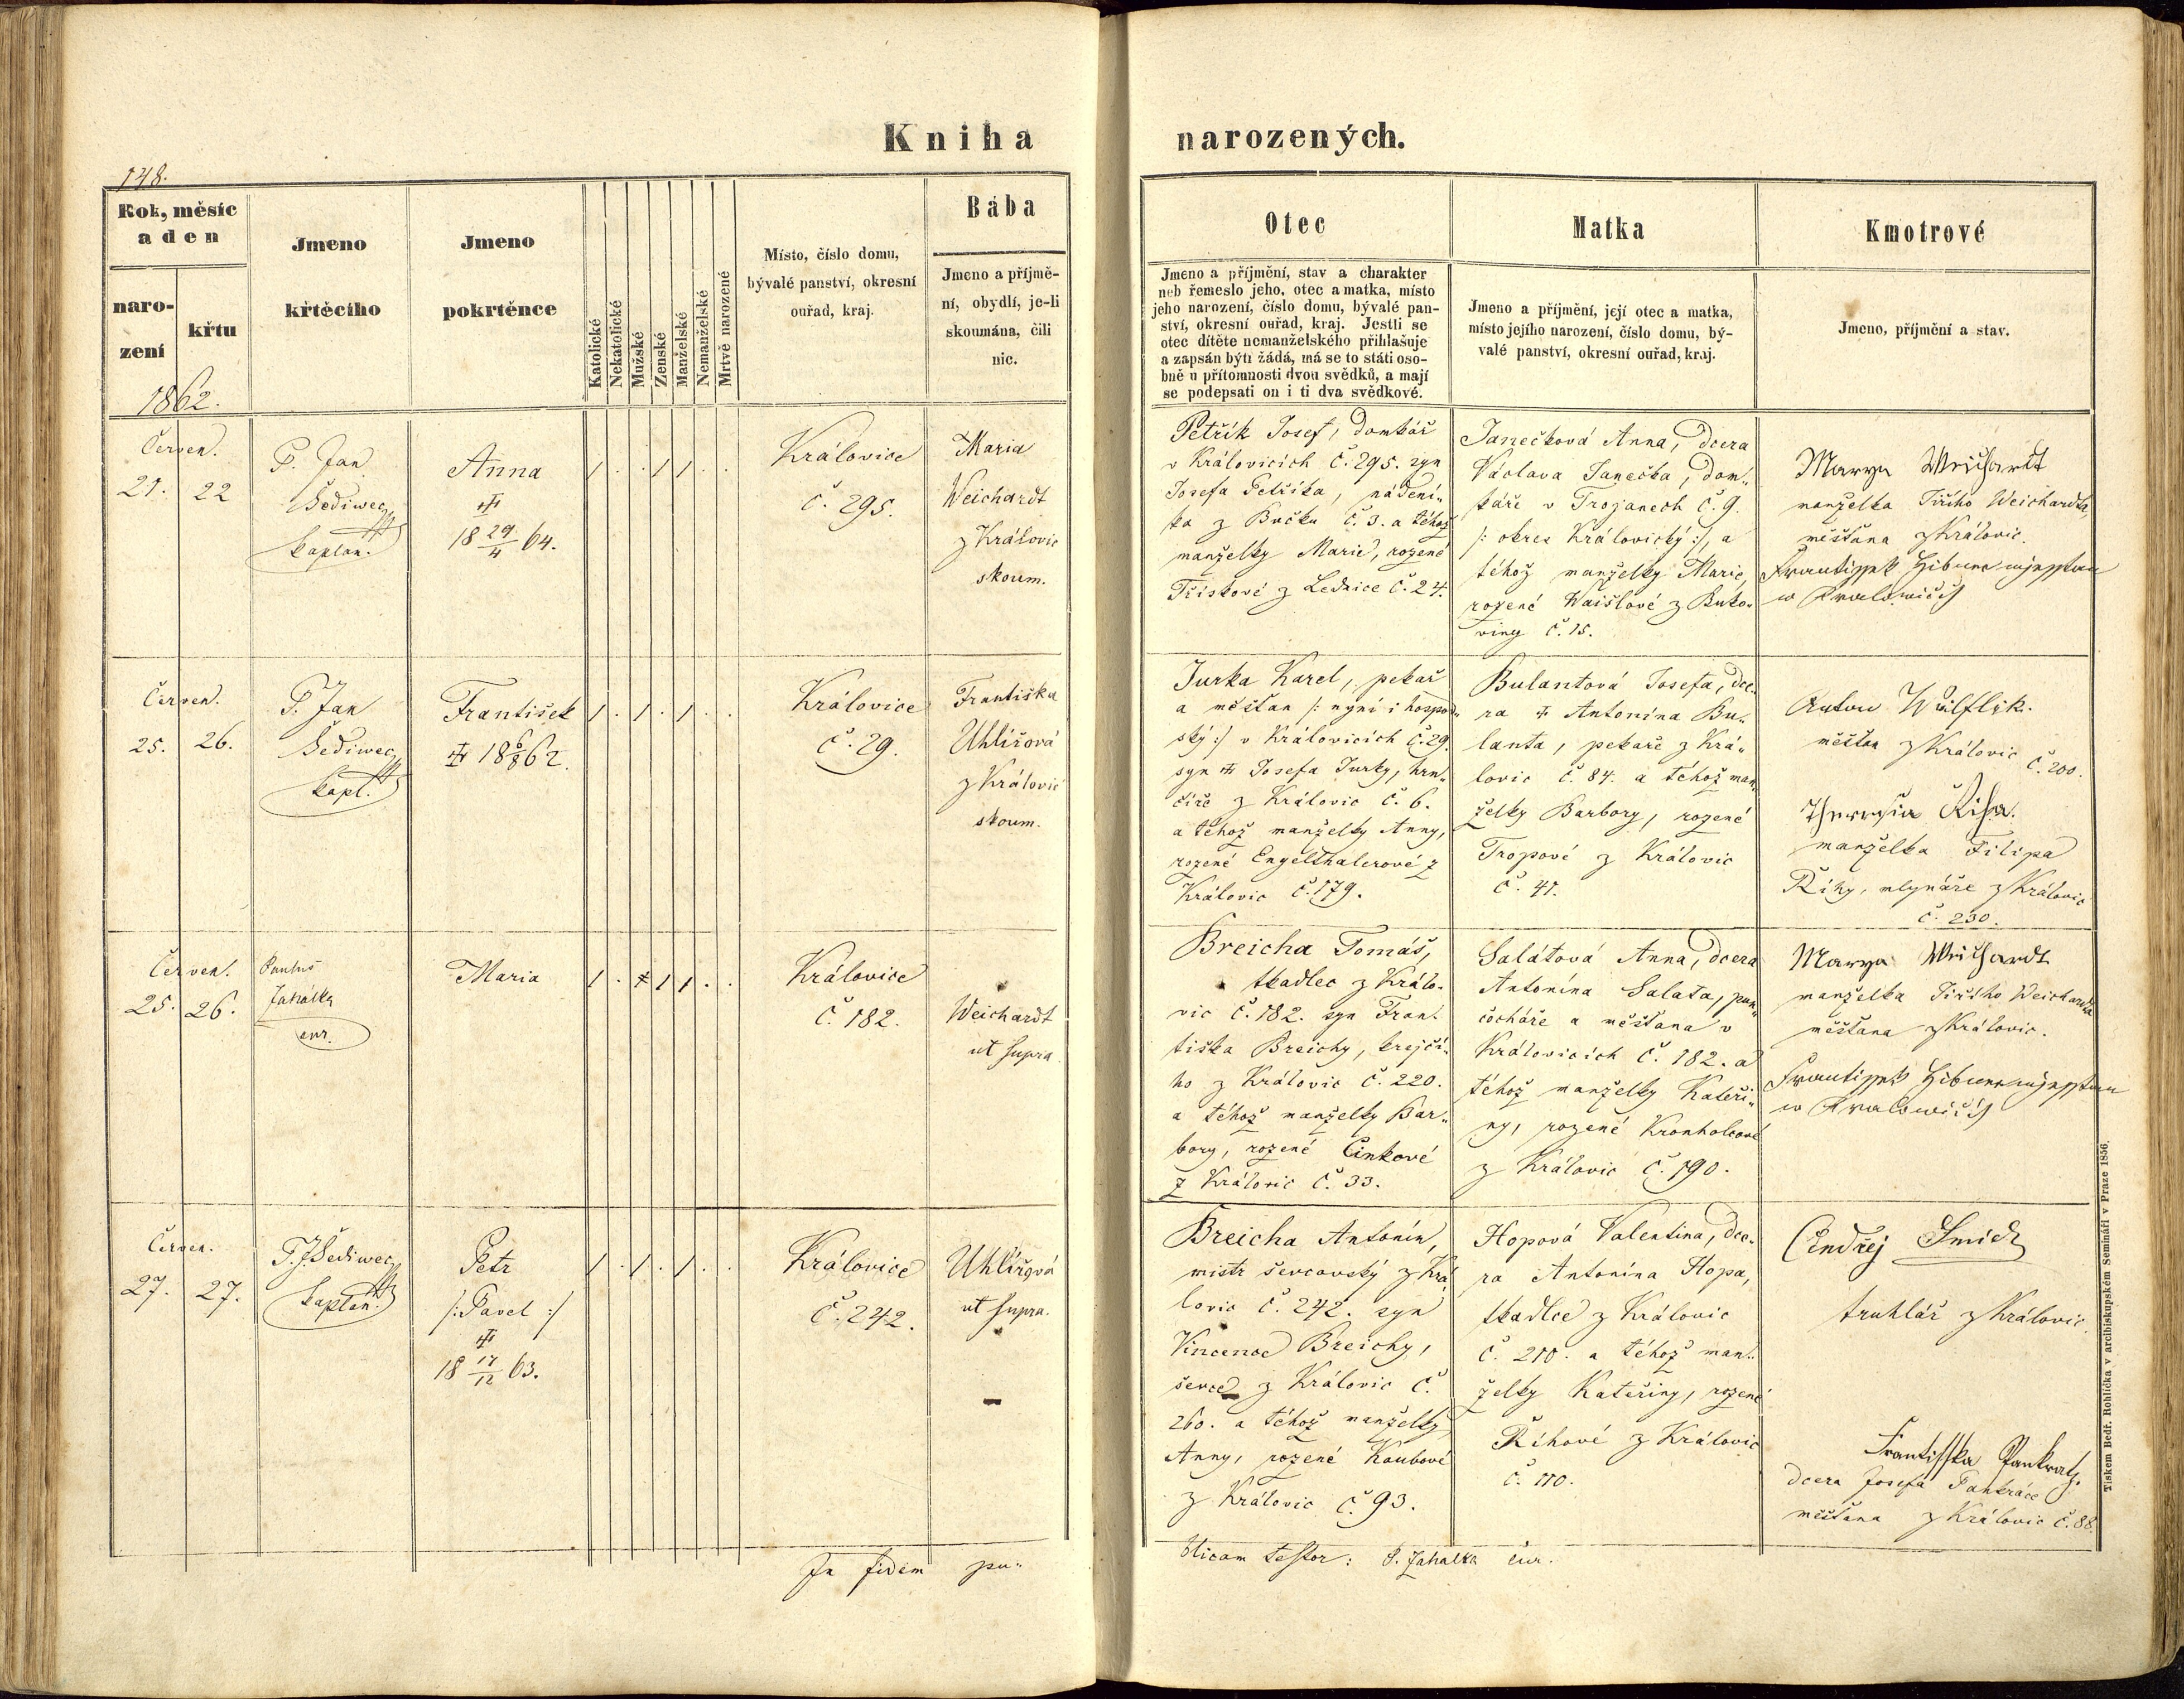 Kniha narozených.
148.
Rok, měsíc
a den
naro-
zení
křtu
Jmeno
křtěcího
Jmeno
pokrtěnce
Katolické
Nekatolické
Mužské
Ženské
Manželské
Nemanželské
Mrtvě narozené
Místo, číslo domu,
bývalé panství, okresní
ouřad, kraj.
Bába
Jmeno a příjmě-
ní, obydlí, je-li
skoumána, čili
nic.
Otec
Jmeno a příjmění, stav a charakter
neb řemeslo jeho, otec a matka, místo
jeho narození, číslo domu, bývalé pan-
ství, okresní ouřad, kraj. Jestli se
otec dítěte nemanželského přihlašuje
a zapsán býti žádá, má se to státi oso-
bně u přítomnosti dvou svědků, a mají
se podepsati on i ti dva svědkové.
Matka
Jmeno a příjmění, její otec a matka,
místo jejího narození, číslo domu, bý-
valé panství, okresní ouřad, kraj.
Kmotrové
Jmeno, příjmění a stav.
1862.
Červen.
21. 22
P. Jan
Šediwec,
kaplan.
Anna
18 29/4 64.
/ . . / / . .
Králowice
č. 295.
Maria
Weichardt
z Králowic
skoum.
Petřík Josef, domkář
v Královicích č. 295. syn
Josefa Petříka, nádení-
ka z Bučku č. 3. a téhož
manželky Marie, rozené
Třískové z Lednice č. 24.
Janečková Anna, dcera
Václava Janečka, dom-
káře v Trojanech č. 9.
/: okres Královický :/, a
téhož manželky Marie,
rozené Waišlové z Buko-
viny č. 15.
Marya Weichardt
manželka Jiřího Weichardta,
měšťana z Královic.
Frantissek Hibner mjesstan
w Kralowicých
Červen.
25. 26.
P. Jan
Šediwec,
kapl.
František
18 6/8 62.
/ . / . / . .
Královice
č. 29.
Františka
Uhlířová
z Královic
skoum.
Jurka Karel, pekař
a měšťan /: nyní i hospod-
ský :/ v Královicích č. 29.
syn Josefa Jurky, hrn-
číře z Královic č. 6.
a téhož manželky Anny,
rozené Engelthalerové z
Královic č. 179.
Bulantová Josefa, dce-
ra Antonína Bu-
lanta, pekaře z Krá-
lovic č. 84. a téhož man-
želky Barbory, rozené
Tropové z Královic
č. 41.
Anton Wülflik.
měšťan z Královic č. 200.
Theresia Řiha.
manželka Filipa
Říhy, mlynáře z Královic
č. 230.
Červen.
25. 26.
Zahálka
Maria
/ . / / . .
Královice
č. 182.
Weichardt
ut supra.
Breicha Tomáš,
tkadlec z Králo-
vic č. 182. syn Fran-
tiška Breichy, krejčí-
ho z Královic č. 220.
a téhož manželky Bar-
bory, rozené Cinkové
z Královic č. 33.
Salátová Anna, dcera
Antonína Salata, pun-
čocháře a měšťana v
Královicích č. 182. a
téhož manželky Kateři-
ny, rozené Kronholcové
z Královic č. 190.
Marya Weichardt
manželka Jiřího Weichardta
měšťana z Královic.
Frantissek Hibner mjesstan
w Kralowicých
Červen.
27. 27.
P. J. Šediwec,
kaplan.
Petr
/: Pavel :/
18 17/12 63.
/ . / . / . .
Královice
č. 242.
Uhlířová
ut supra.
Breicha Antonín,
mistr ševcovský z Krá-
lovic č. 242. syn
Vincence Breichy,
ševce z Královic č.
260. a téhož manželky
Anny, rozené Koubové
z Královic č. 93.
Hopová Valentina, dce-
ra Antonína Hopa,
tkadlce z Královic
č. 210. a téhož man-
želky Kateřiny, rozené
Říhové z Královic
č. 110.
Ondřej Smid
truhlář z Královic.
Frantisska Pankratz.
dcera Josefa Pankráce
měšťana z Královic č. 88.
In fidem pu-
blicam testor: P. Zahálka
Tiskem Bedř. Rohlíčka v arcibiskupském Semináři v Praze 1856.